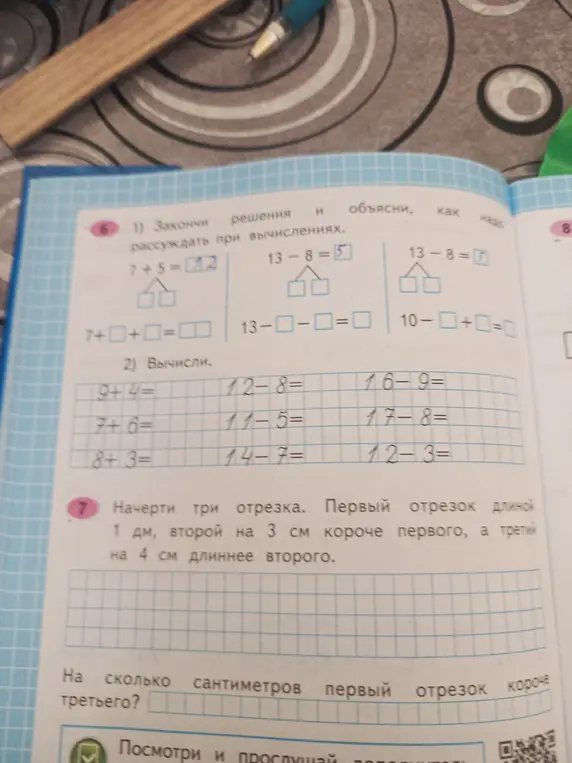 6 1) Закончи решения и объясни, как надо
рассуждать при вычислениях.
7 + 5 = 12
13 – 8 = 5
13 – 8 =
7+□+□=□□
13–□–□=□
10–□+□=□
2) Вычисли.
9+4= 12–8= 16–9=
7+6= 11–5= 17–8=
8+3= 14–7= 12–3=
7 Начерти три отрезка. Первый отрезок длиной
1 дм, второй на 3 см короче первого, а третий
на 4 см длиннее второго.
На сколько сантиметров первый отрезок короче
третьего?
Посмотри и прослушай
8